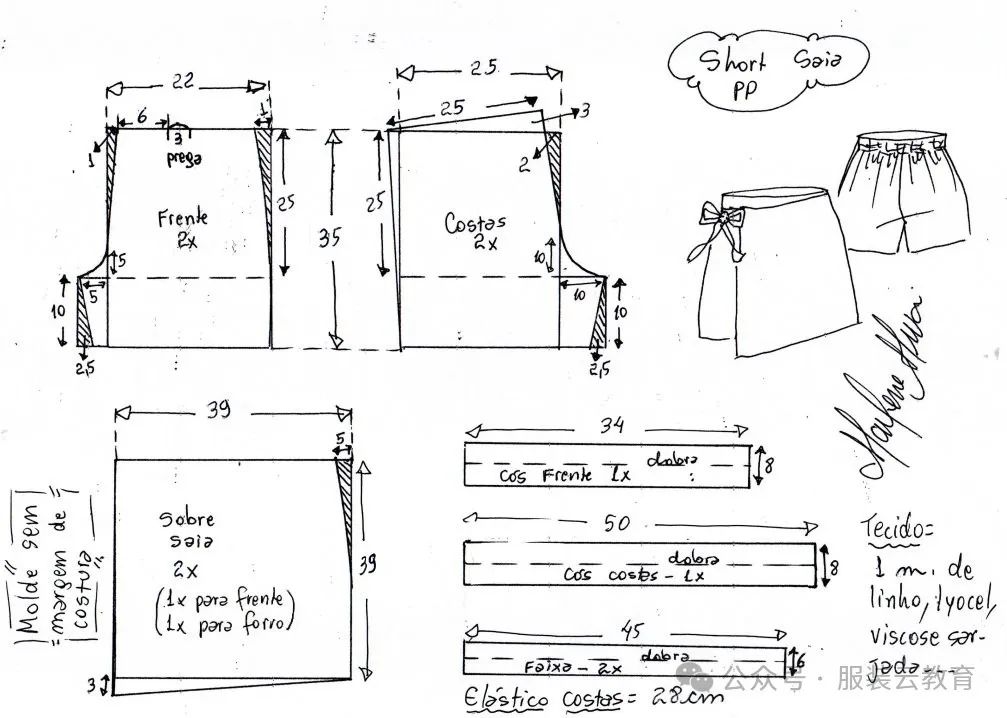 Short Saia
PP
22
6
1
1
3
prega
25
Frente
2x
5
5
10
2,5
35
25
25
3
2
25
Costas
2x
10
10
10
2,5
39
5
Sobre
saia
2x
(1x para frente
1x para forro)
39
3
"Molde sem
margem de
costura"
34
dobra
cos Frente 1x
8
50
dobra
Cós costas - 1x
8
45
dobra
Faixa - 2x
6
Elástico costas = 28cm
Tecido=
1 m. de
linho, lyocel,
viscose sar-
jada
公众号 · 服装云教育